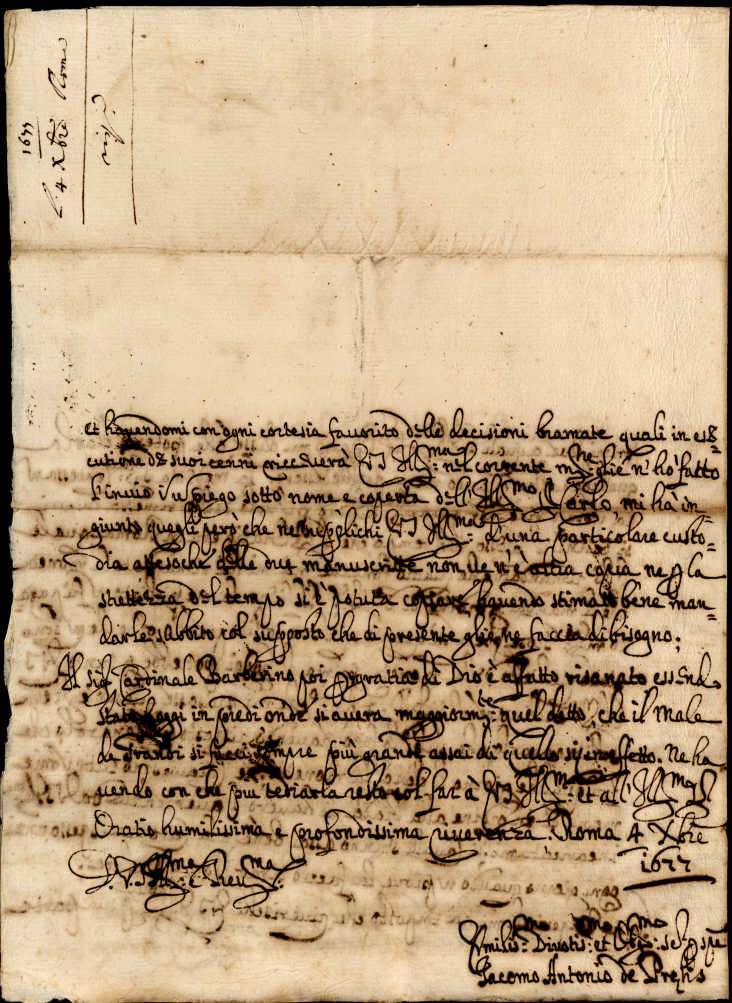 1677
4 Xbre Roma
et havendomi con ogni cortesia favorito delle decisioni bramate quali in es8
cutione de suoi cenni riceverà V.S. Ill:ma nel corrente n'hò fatto
l'invio sotto nome e coperta dell' Ill:mo S. Carlo, mi hà in=
giunto quegli però che ne supplichi V.S. Ill:ma d'una particolare custo=
dia attesoche delle due manuscritte non ve n'è altra copia ne p la
strettezza del tempo si è potuta copiare havendo stimato bene man=
darle subbito col supposto che di presente gliene faccia di bisogno;
Il sig. Cardinale Barberino poi p gratia di Dio è affatto risanato essendo
stato hoggi in piedi onde si avera maggiorm:te quel detto, che il male
de grandi si fà sempre più grande assai di quello sij in effetto. Ne ha
vendo con che più tediarla resto col far à V.S. Ill:ma et all' Ill:mo S.
Oratio humilissima e profondissima riverenza. Roma 4 Xbre
1677
D. V. S. Ill:ma e Reu:ma
Humilis:mo Divotis:mo et Obl:mo se:
Giacomo Antonio de